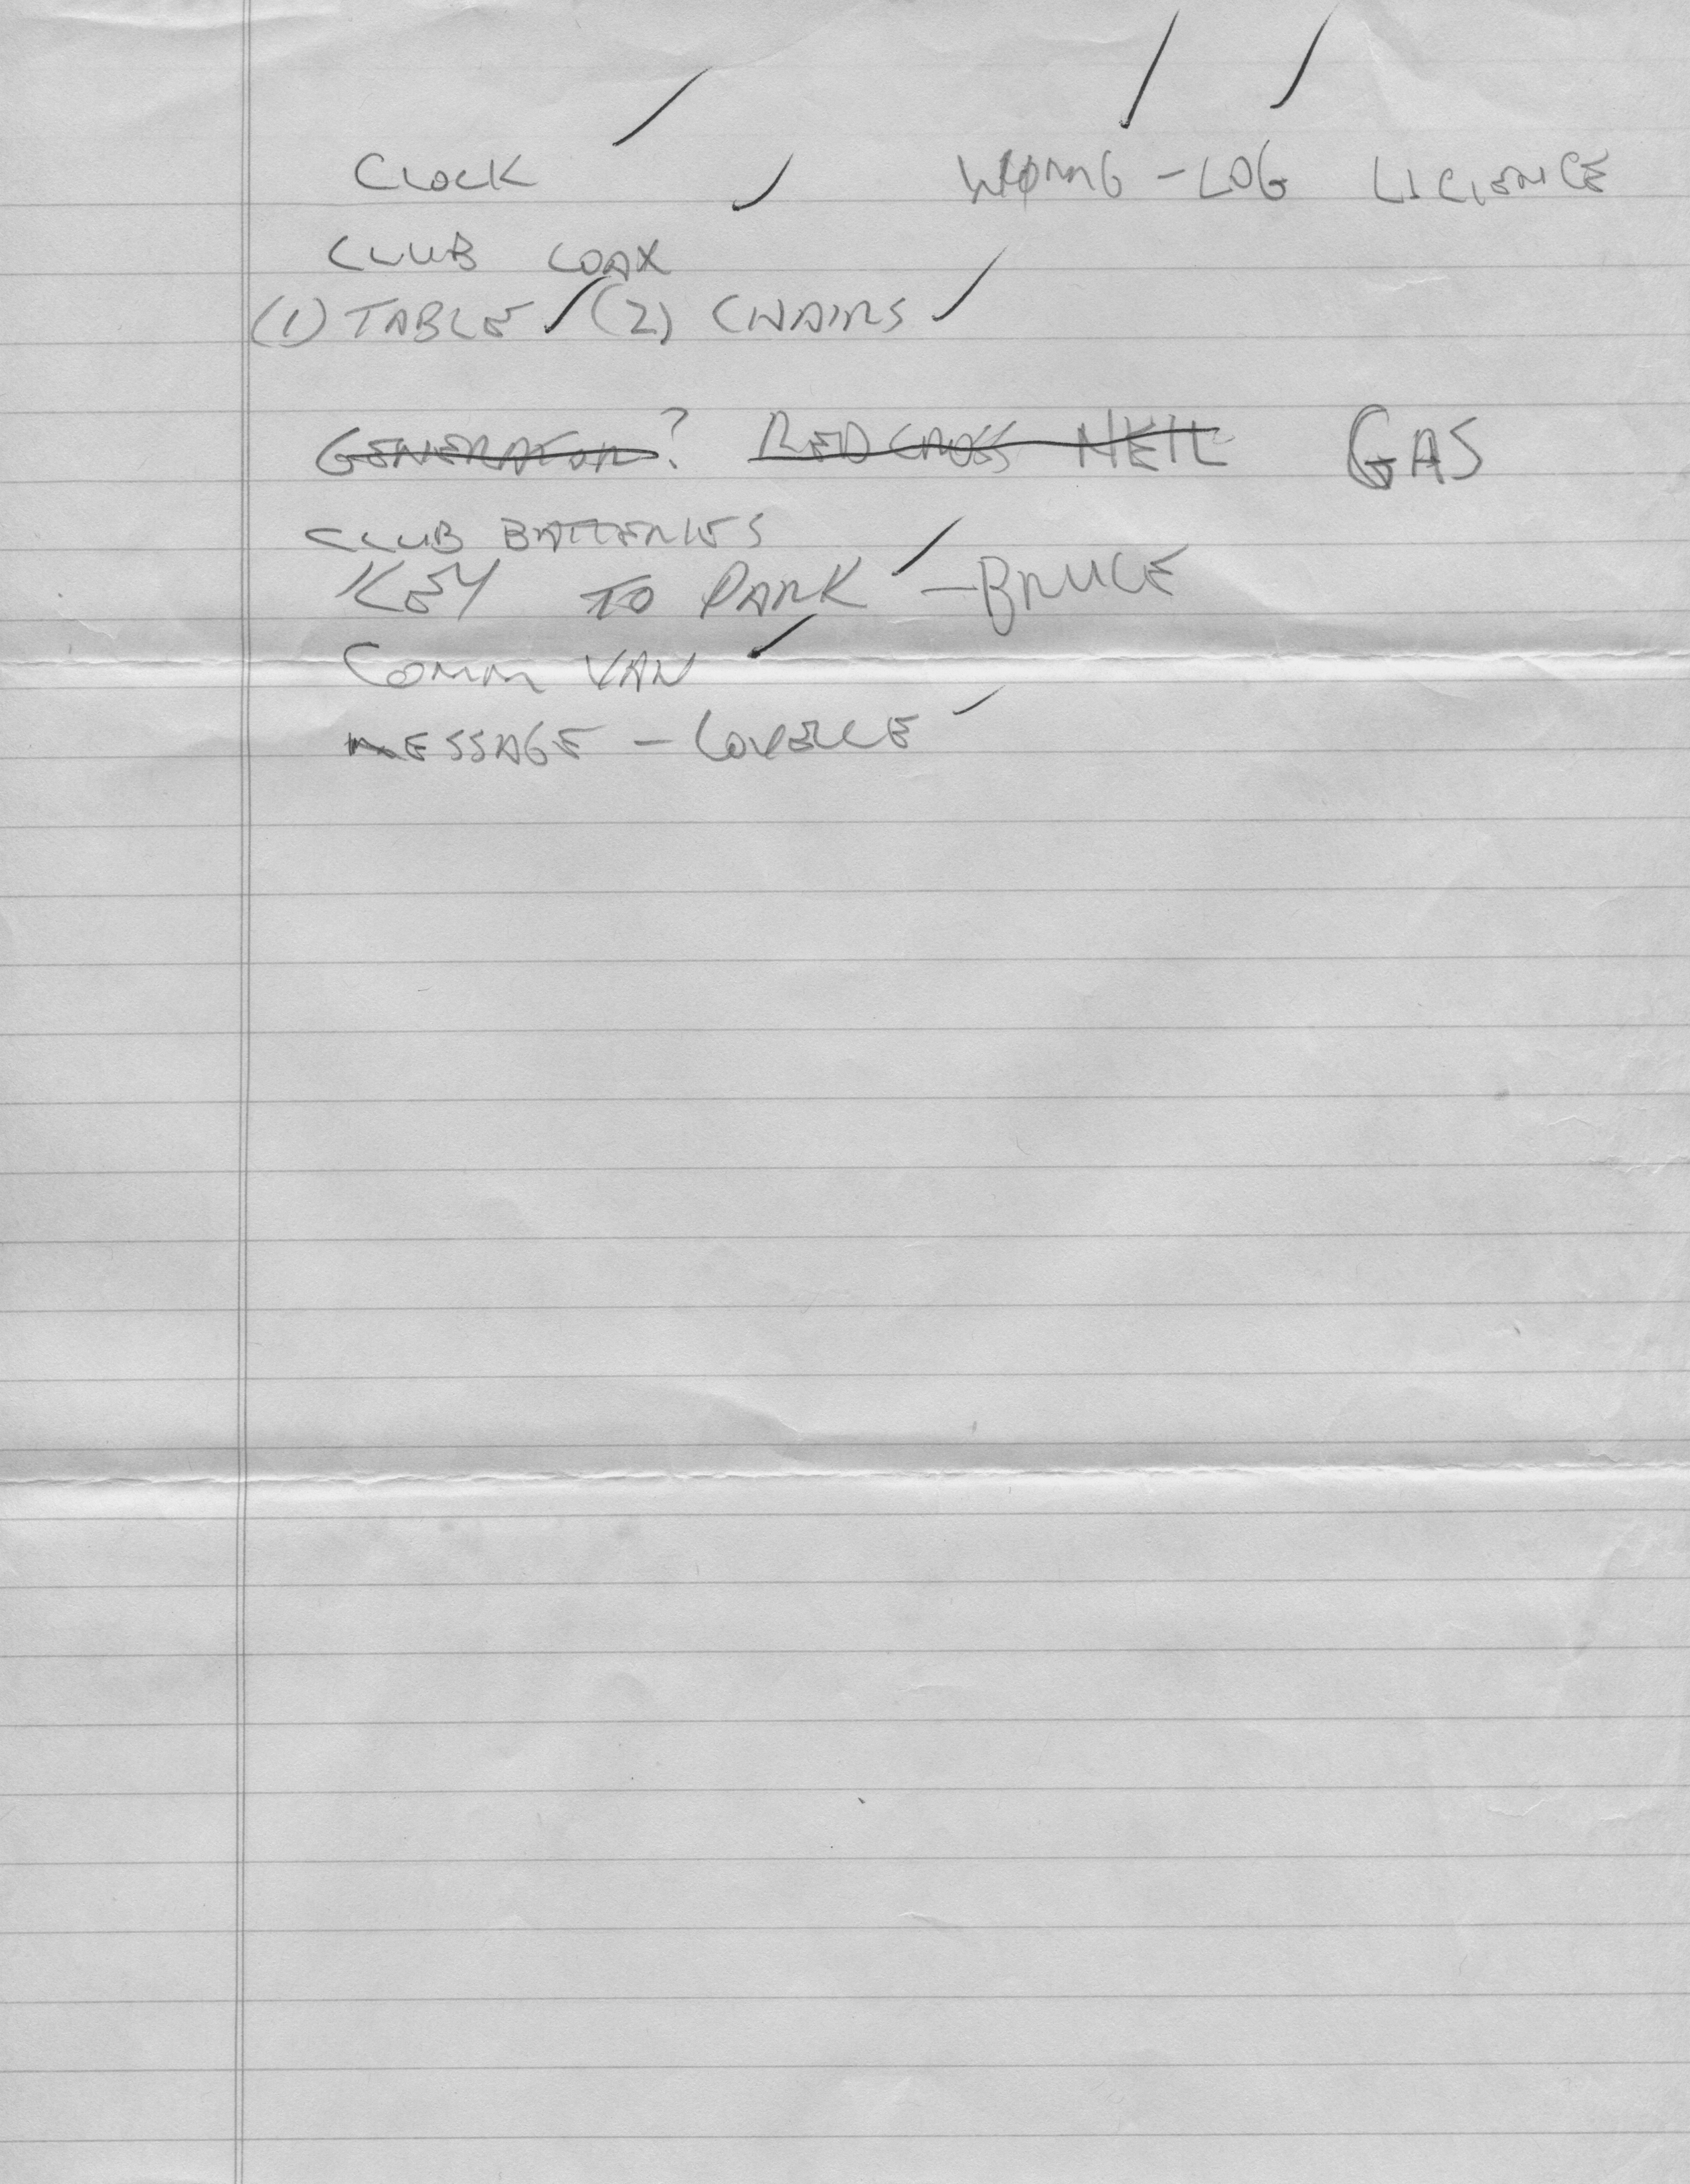 CLOCK -LOG LICIENCE
CLUB COAX
(1) TABLE (2) CHAIRS
GENERATOR? RED CROSS NEIL GAS
CLUB BATTERIES
KEY TO PARK - BRUCE
COMM VAN
MESSAGE -